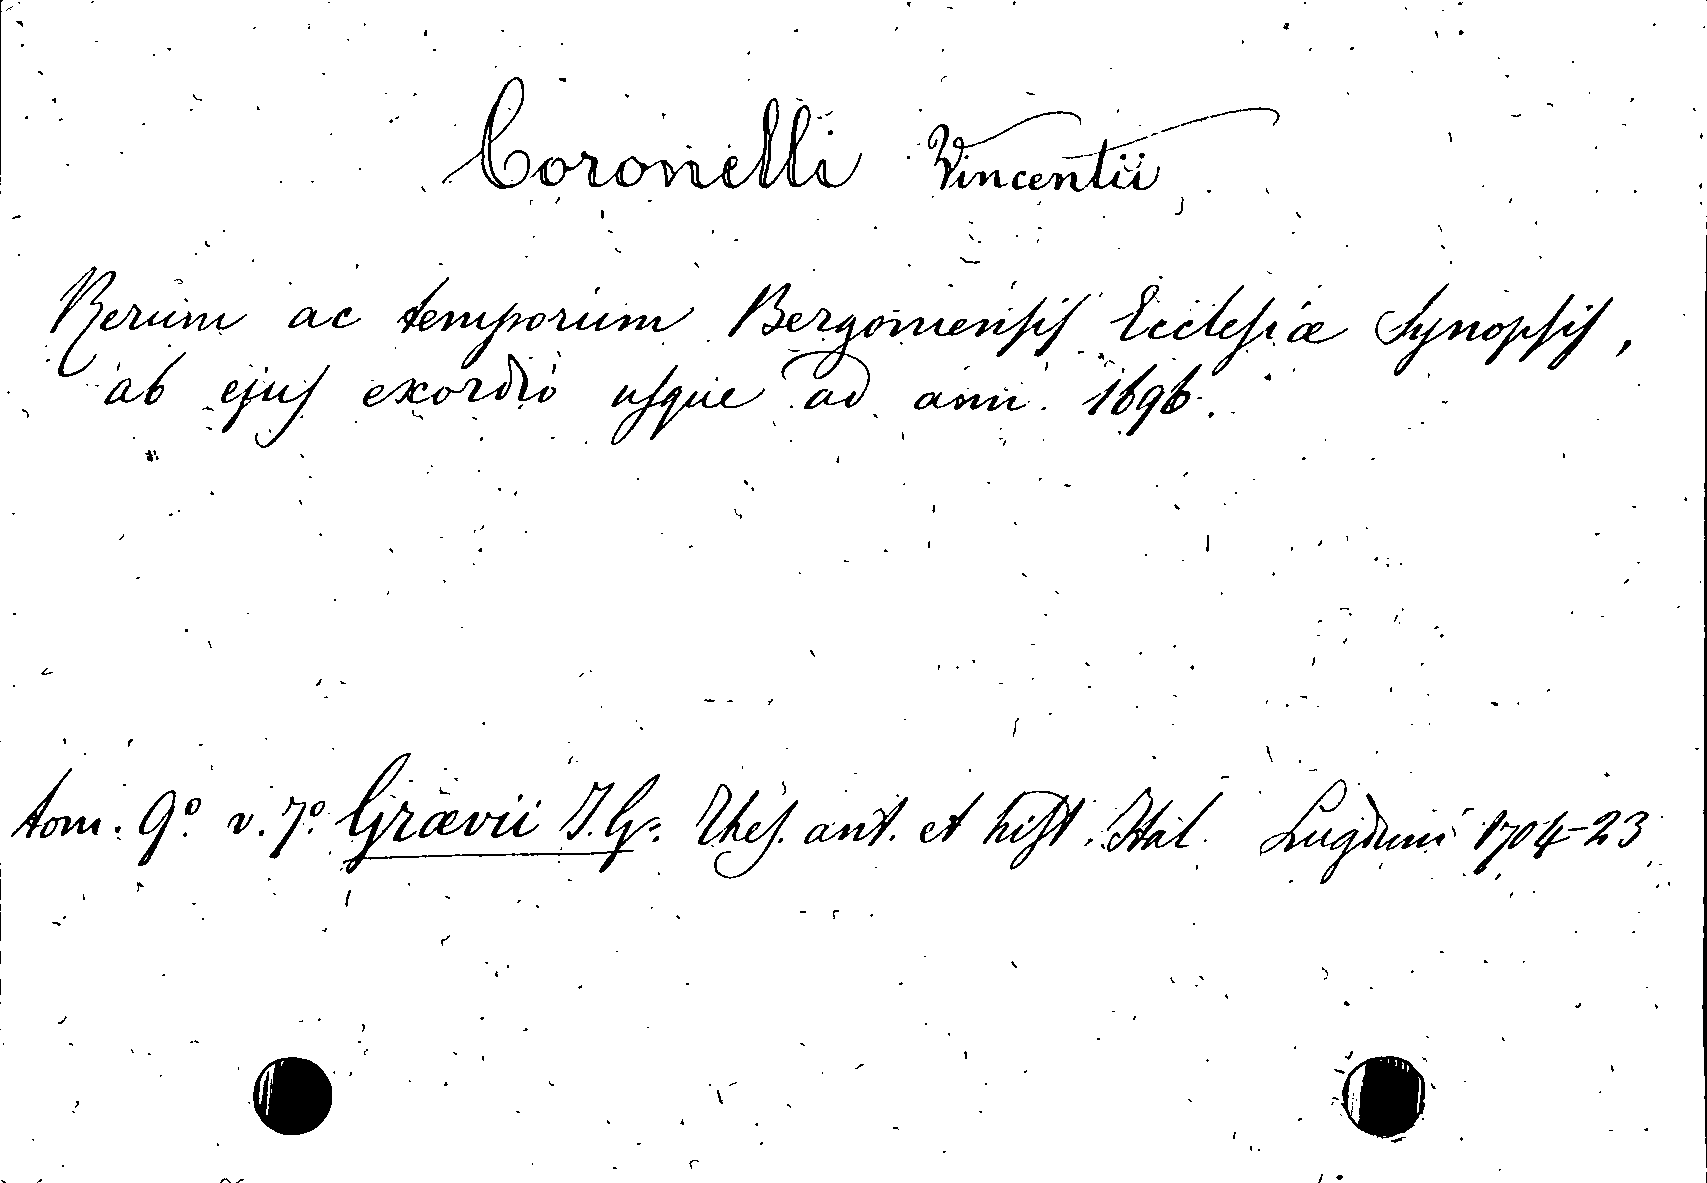 Coronelli Vincentii,
Rerum ac temporum Bergomensis Ecclesiæ Synopsis,
ab ejus exordio usque ad ann. 1696.
tom. 9º v. 7º Grævii J. G. Thes. ant. et hist. Ital. Lugduni 1704-23